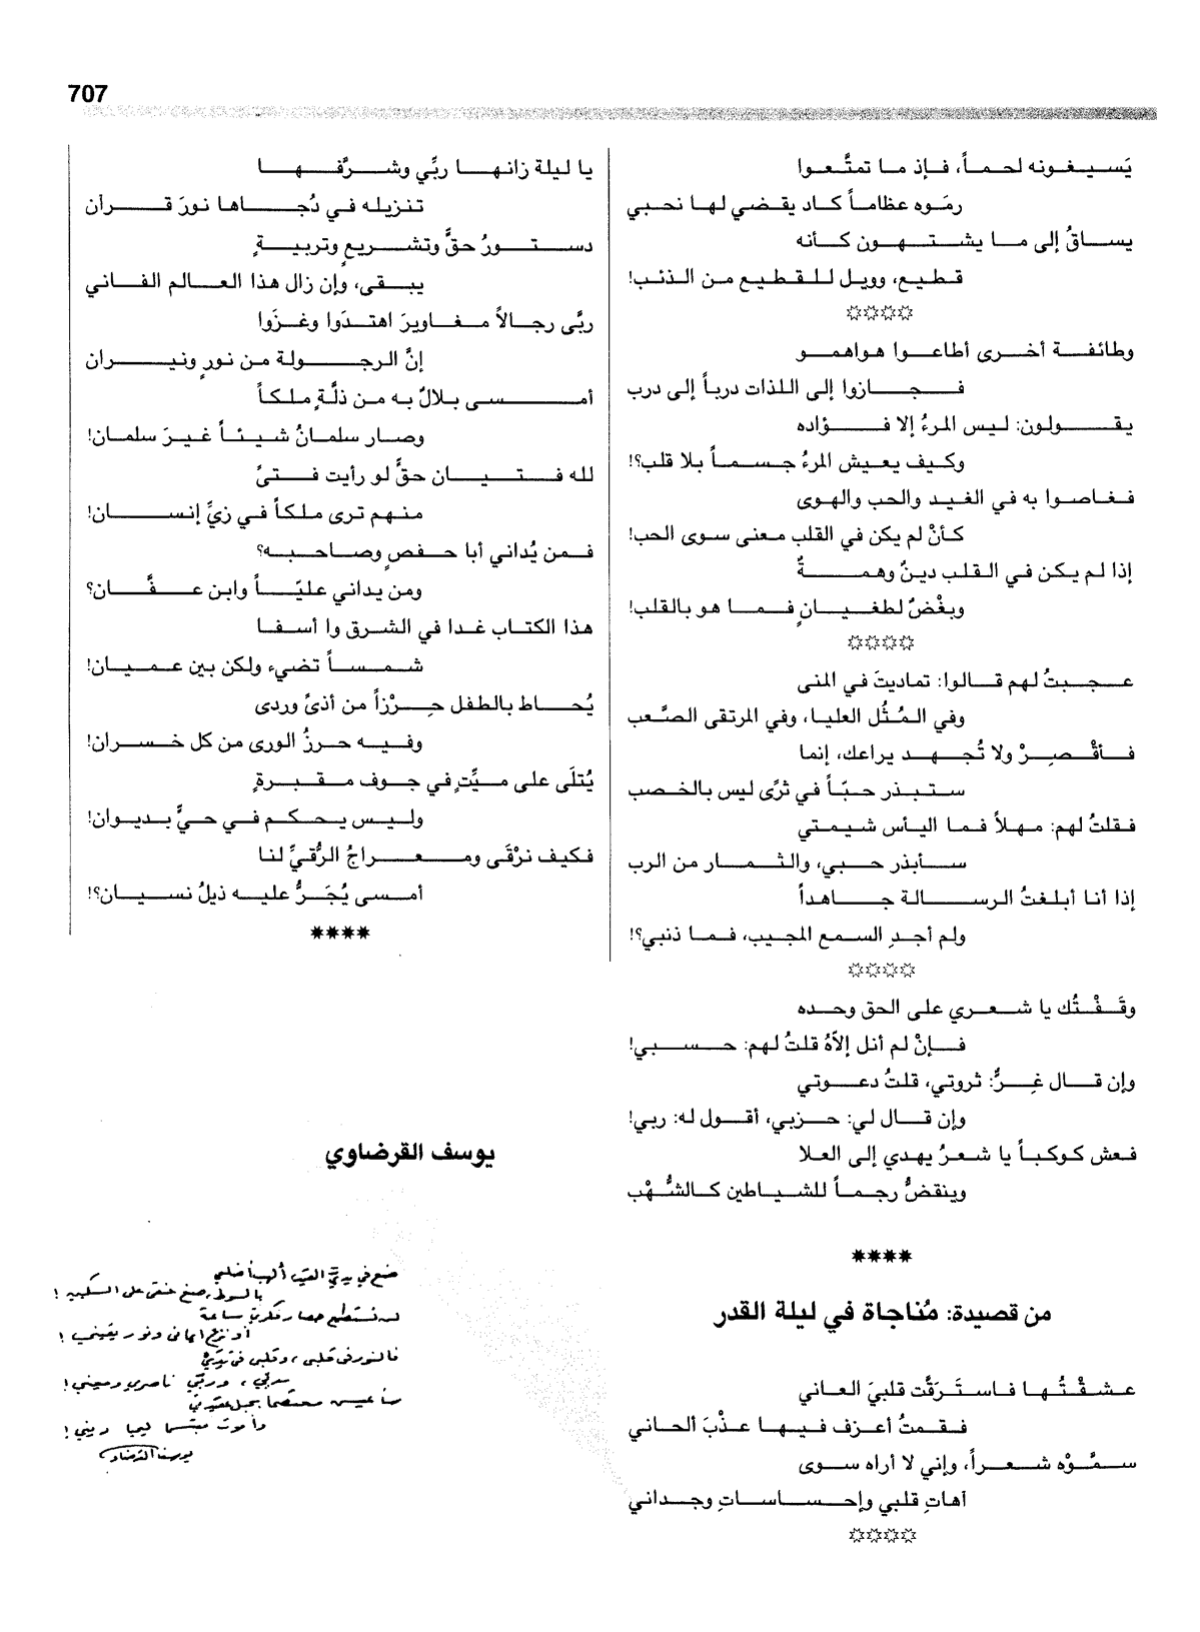 707
يَسيغونه لحماً، فإذ ما تمتَّعوا
رمَوه عظاماً كاد يقضي لها نحبي
يساقُ إلى ما يشتهون كأنه
قطيع، وويل للقطيع من الذئب!
وطائفة أخرى أطاعوا هواهمو
فجازوا إلى اللذات درباً إلى درب
يقولون: ليس المرءُ إلا فؤاده
وكيف يعيش المرءُ جسماً بلا قلب؟!
فغاصوا به في الغيد والحب والهوى
كأنْ لم يكن في القلب معنى سوى الحب!
إذا لم يكن في القلب دينٌ وهمةٌ
وبغْضٌ لطغيانٍ فما هو بالقلب!
عجبتُ لهم قالوا: تماديتَ في المنى
وفي المُثُل العليا، وفي المرتقى الصَّعب
فأقْصِرْ ولا تُجهد يراعك، إنما
ستبذر حبّاً في ثرًى ليس بالخصب
فقلتُ لهم: مهلاً فما اليأس شيمتي
سأبذر حبي، والثمار من الرب
إذا أنا أبلغتُ الرسالة جاهداً
ولم أجدِ السمع المجيب، فما ذنبي؟!
وقَفْتُك يا شعري على الحق وحده
فإنْ لم أنل إلاّهُ قلتُ لهم: حسبي!
وإن قال غِرٌّ: ثروتي، قلتُ دعوتي
وإن قال لي: حزبي، أقول له: ربي!
فعش كوكباً يا شعرُ يهدي إلى العلا
وينقضُّ رجماً للشياطين كالشُّهْب
****
من قصيدة: مُناجاة في ليلة القدر
عشقْتُها فاستَرَقَّت قلبيَ العاني
فقمتُ أعزف فيها عذْبَ ألحاني
سمَّوْه شعراً، وإني لا أراه سوى
آهاتِ قلبي وإحساساتِ وجداني
يا ليلة زانها ربِّي وشرَّفها
تنزيله في دُجاها نورَ قرآن
دستورُ حقٍّ وتشريعٍ وتربيةٍ
يبقى، وإن زال هذا العالم الفاني
ربَّى رجالاً مغاويرَ اهتدَوا وغزَوا
إنَّ الرجولة من نورٍ ونيران
أمسى بلالٌ به من ذلَّةٍ ملكاً
وصار سلمانُ شيئاً غيرَ سلمان!
لله فتيان حقٍّ لو رأيت فتىً
منهم ترى ملكاً في زيِّ إنسان!
فمن يُداني أبا حفصٍ وصاحبه؟
ومن يداني عليّاً وابن عفَّان؟
هذا الكتاب غدا في الشرق وا أسفا
شمساً تضيء ولكن بين عميان!
يُحاط بالطفل حِرْزاً من أذىً وردى
وفيه حرزُ الورى من كل خسران!
يُتلَى على ميَّتٍ في جوف مقبرةٍ
وليس يحكم في حيٍّ بديوان!
فكيف نرْقَى ومعراجُ الرُّقيِّ لنا
أمسى يُجَرُّ عليه ذيلُ نسيان؟!
****
يوسف القرضاوي
ضع في يديَّ القيد ألهب أضلعي
بالسوط، ضع عنقي على السكين!
لن تستطيع حصار فكري ساعة
أو نزع إيماني ونور يقيني!
فالنور في قلبي، وقلبي في يديْ
ربي، وربي ناصري ومعيني!
سأعيش معتصما بحبل عقيدتي
وأموت مبتسما ليحيا ديني!
يوسف القرضاوي